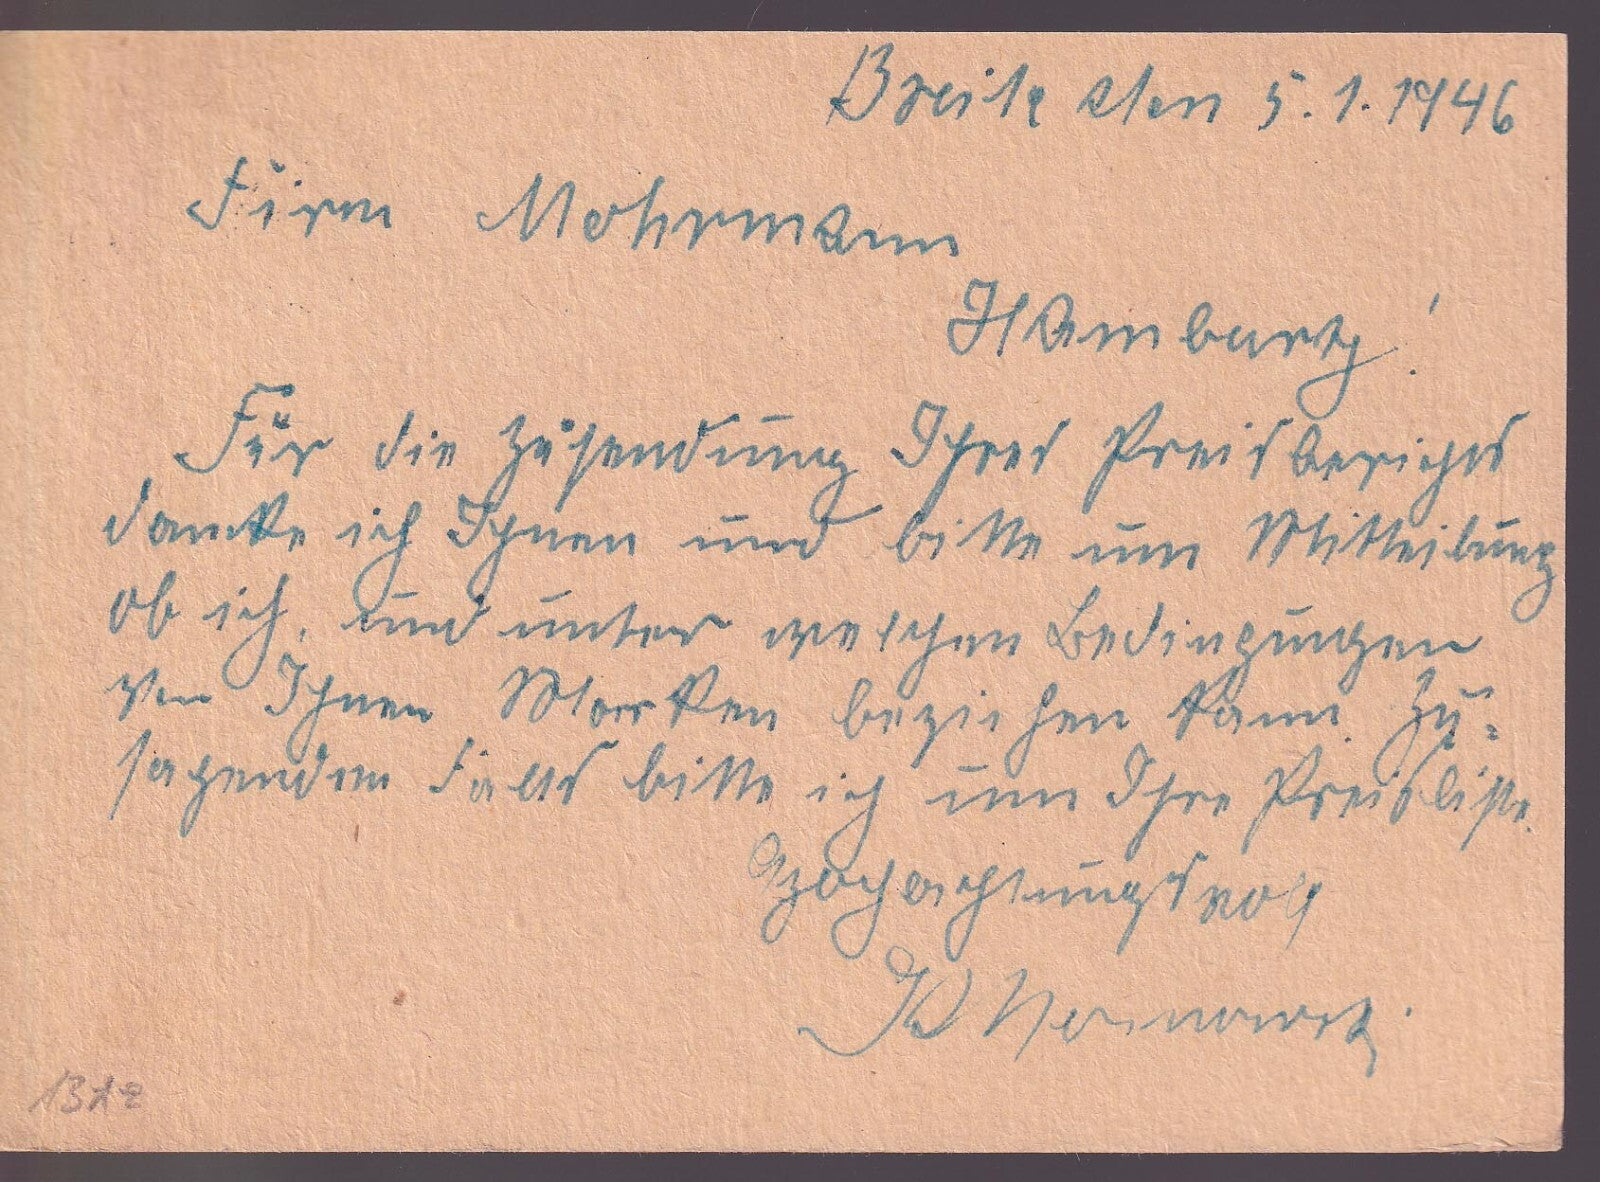 Breite den 5.1.1946
Firma Mohrmann
Hamburg!
Für die Zusendung Ihres Preisberichts
danke ich Ihnen und bitte um Mitteilung
ob ich, und unter welchen Bedingungen
von Ihnen Marken beziehen kann. Zu=
sagenden Falls bitte ich um Ihre Preisliste.
Hochachtungsvoll